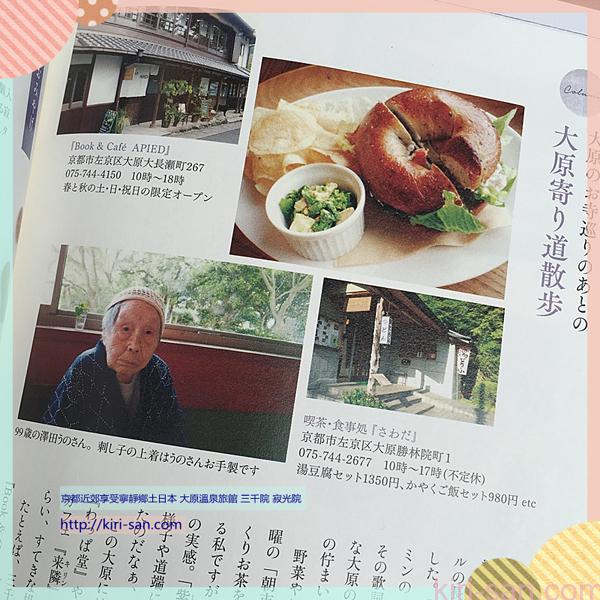 Colu
大原のお寺巡りのあとの
大原寄り道散歩
『Book & Café APIED』
京都市左京区大原大長瀬町267
075-744-4150 10時〜18時
春と秋の土・日・祝日の限定オープン
99歳の澤田うのさん。刺し子の上着はうのさんお手製です
喫茶・食事処『さわだ』
京都市左京区大原勝林院町1
075-744-2677 10時〜17時(不定休)
湯豆腐セット1350円、かやくご飯セット980円 etc
京都近郊享受寧靜鄉土日本 大原溫泉旅館 三千院 寂光院
http://kiri-san.com
ルの
した。
ミンの
その歌詞
な大原の
の佇まい
野菜や
曜の「朝市
くりお茶を
る私ですが
の実感。「紫
様子や道端に
たのだなぁ、
の大原に
『来隣
らい、すてきな
たとえば、三千
kiri-san.com